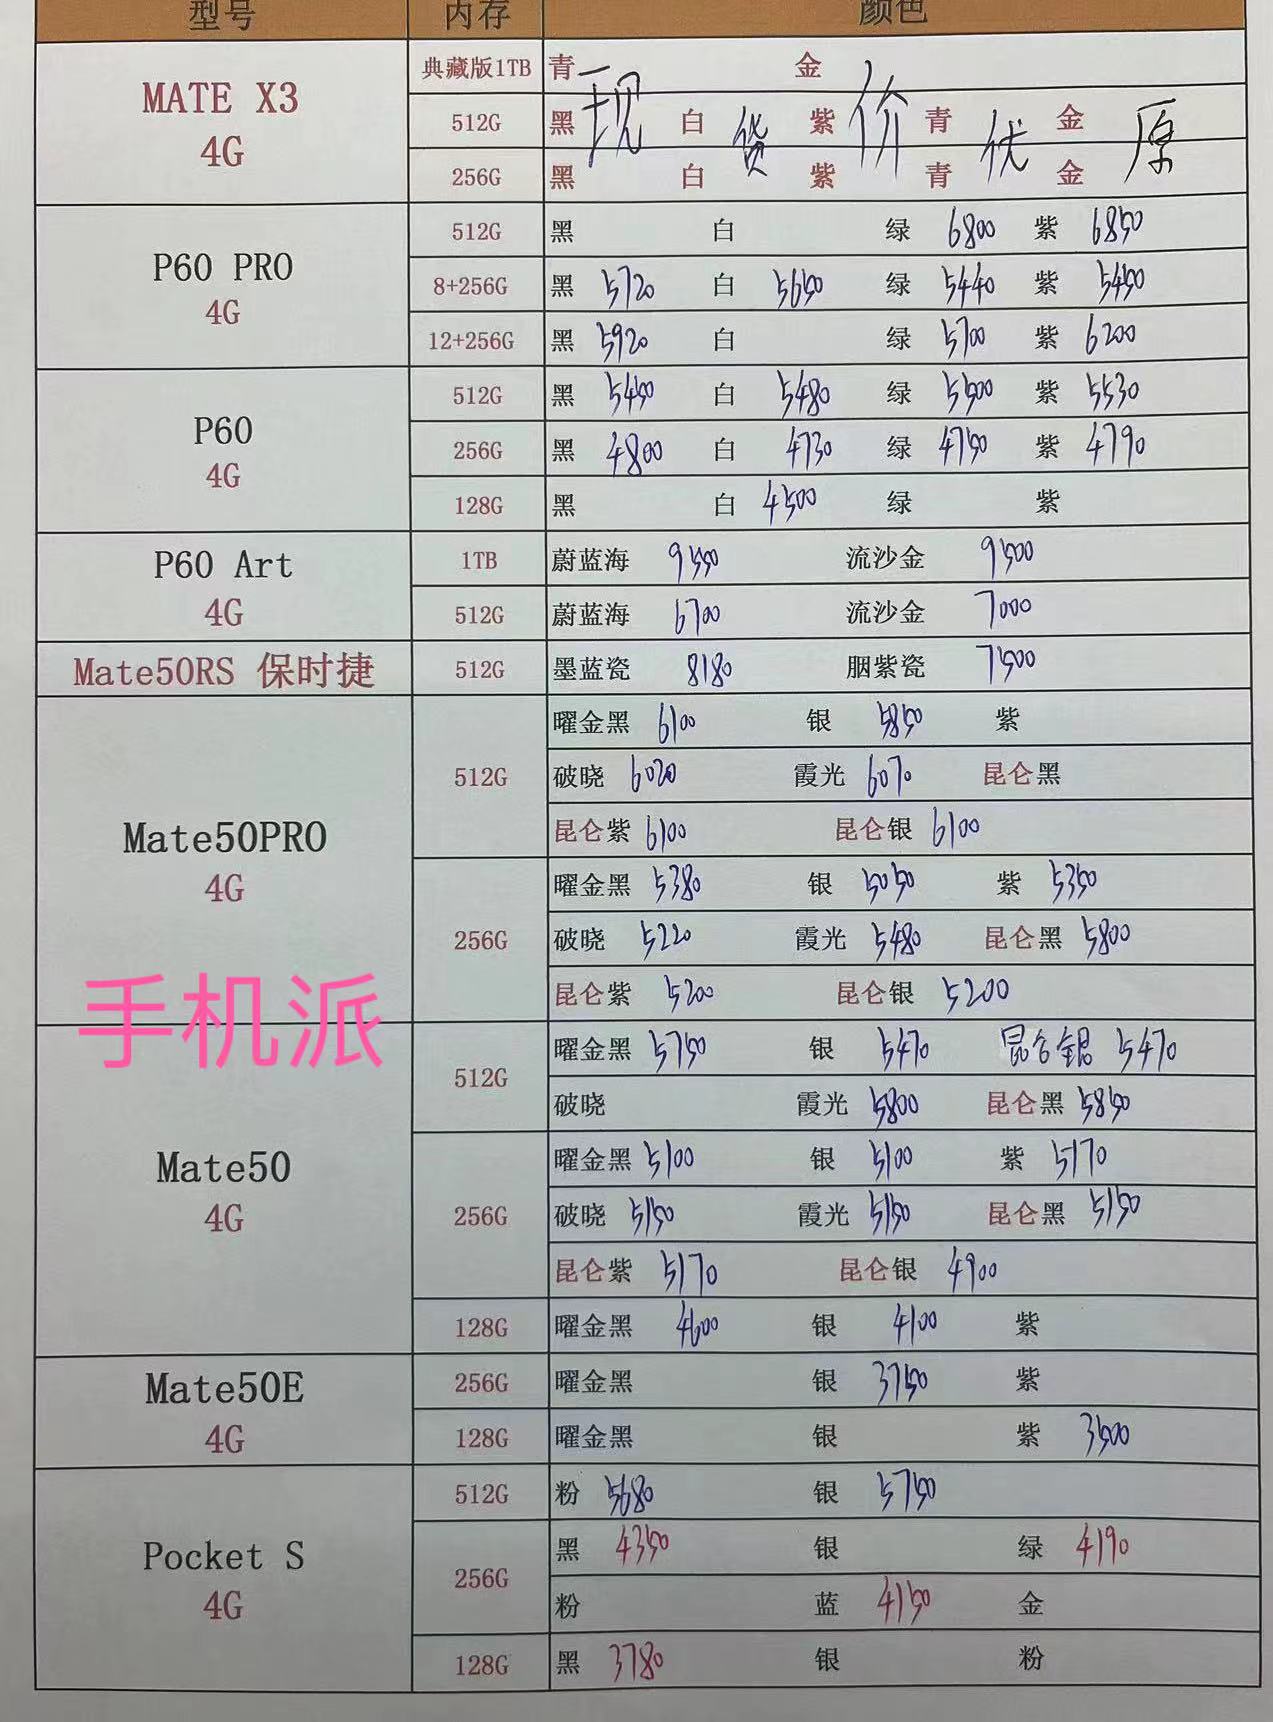 型号 内存 颜色
MATE X3
4G
典藏版1TB 青 金
512G 黑 白 紫 青 金
现 货 价 优 原
256G 黑 白 紫 青 金
P60 PRO
4G
512G 黑 白 绿 6800 紫 6850
8+256G 黑 5720 白 5650 绿 5440 紫 5450
12+256G 黑 5920 白 绿 5700 紫 6200
P60
4G
512G 黑 5450 白 5480 绿 5500 紫 5530
256G 黑 4800 白 4730 绿 4750 紫 4790
128G 黑 白 4500 绿 紫
P60 Art
4G
1TB 蔚蓝海 9550 流沙金 9500
512G 蔚蓝海 6700 流沙金 7000
Mate50RS 保时捷 512G 墨蓝瓷 8180 胭紫瓷 7500
Mate50PRO
4G
512G
曜金黑 6100 银 5850 紫
破晓 6020 霞光 6070 昆仑黑
昆仑紫 6100 昆仑银 6100
256G
曜金黑 5380 银 5050 紫 5350
破晓 5220 霞光 5480 昆仑黑 5800
昆仑紫 5200 昆仑银 5200
手机派
Mate50
4G
512G
曜金黑 5750 银 5470 昆仑银 5470
破晓 霞光 5800 昆仑黑 5850
256G
曜金黑 5100 银 5100 紫 5170
破晓 5150 霞光 5150 昆仑黑 5150
昆仑紫 5170 昆仑银 4900
128G 曜金黑 4600 银 4100 紫
Mate50E
4G
256G 曜金黑 银 3750 紫
128G 曜金黑 银 紫 3500
Pocket S
4G
512G 粉 5680 银 5750
256G
黑 4350 银 绿 4190
粉 蓝 4150 金
128G 黑 3780 银 粉